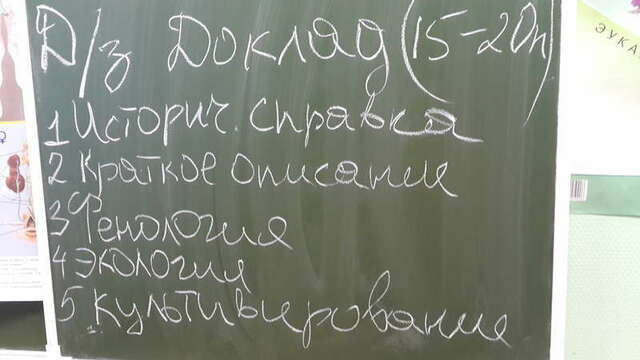 Д/з Доклад (15-20п)
1 Историч. справка
2 Краткое описание
3 Фенология
4 Экология
5. Культивирование
ЭУКА